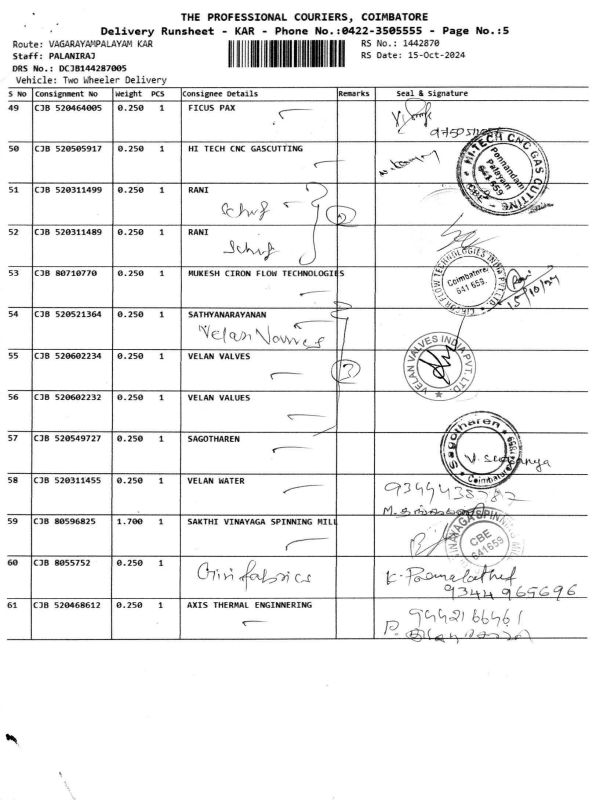 THE PROFESSIONAL COURIERS, COIMBATORE
Delivery Runsheet - KAR - Phone No.:0422-3505555 - Page No.:5
Route: VAGARAYAMPALAYAM KAR RS No.: 1442870
Staff: PALANIRAJ RS Date: 15-Oct-2024
DRS No.: DCJB144287005
Vehicle: Two Wheeler Delivery
S No Consignment No Weight PCS Consignee Details Remarks Seal & Signature
49 CJB 520464005 0.250 1 FICUS PAX
50 CJB 520505917 0.250 1 HI TECH CNC GASCUTTING
HI-TECH CNC GAS CUTTING
Ponnandam
Palayam
641 659
51 CJB 520311499 0.250 1 RANI
2
52 CJB 520311489 0.250 1 RANI
53 CJB 80710770 0.250 1 MUKESH CIRON FLOW TECHNOLOGIES
FLOW TECHNOLOGIES INDIA PVT LTD
Coimbatore
641 659.
15/10/24
54 CJB 520521364 0.250 1 SATHYANARAYANAN
Velan Valves
55 CJB 520602234 0.250 1 VELAN VALVES 3
VELAN VALVES INDIA PVT. LTD.
56 CJB 520602232 0.250 1 VELAN VALUES
57 CJB 520549727 0.250 1 SAGOTHAREN
Sagotharen
Coimbatore
58 CJB 520311455 0.250 1 VELAN WATER
59 CJB 80596825 1.700 1 SAKTHI VINAYAGA SPINNING MILL
CBE
641659
60 CJB 8055752 0.250 1 Giri fabrics
9344 965696
61 CJB 520468612 0.250 1 AXIS THERMAL ENGINNERING